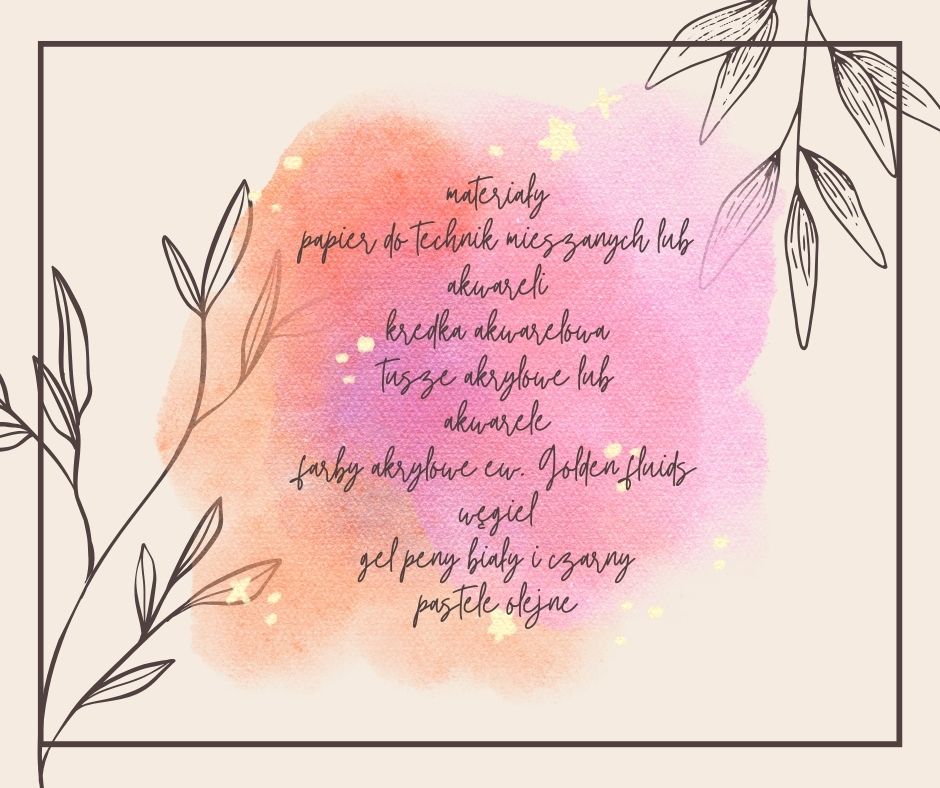 materiały
papier do technik mieszanych lub
akwareli
kredka akwarelowa
Tusze akrylowe lub
akwarele
farby akrylowe ew. Golden fluids
węgiel
gel peny biały i czarny
pastele olejne